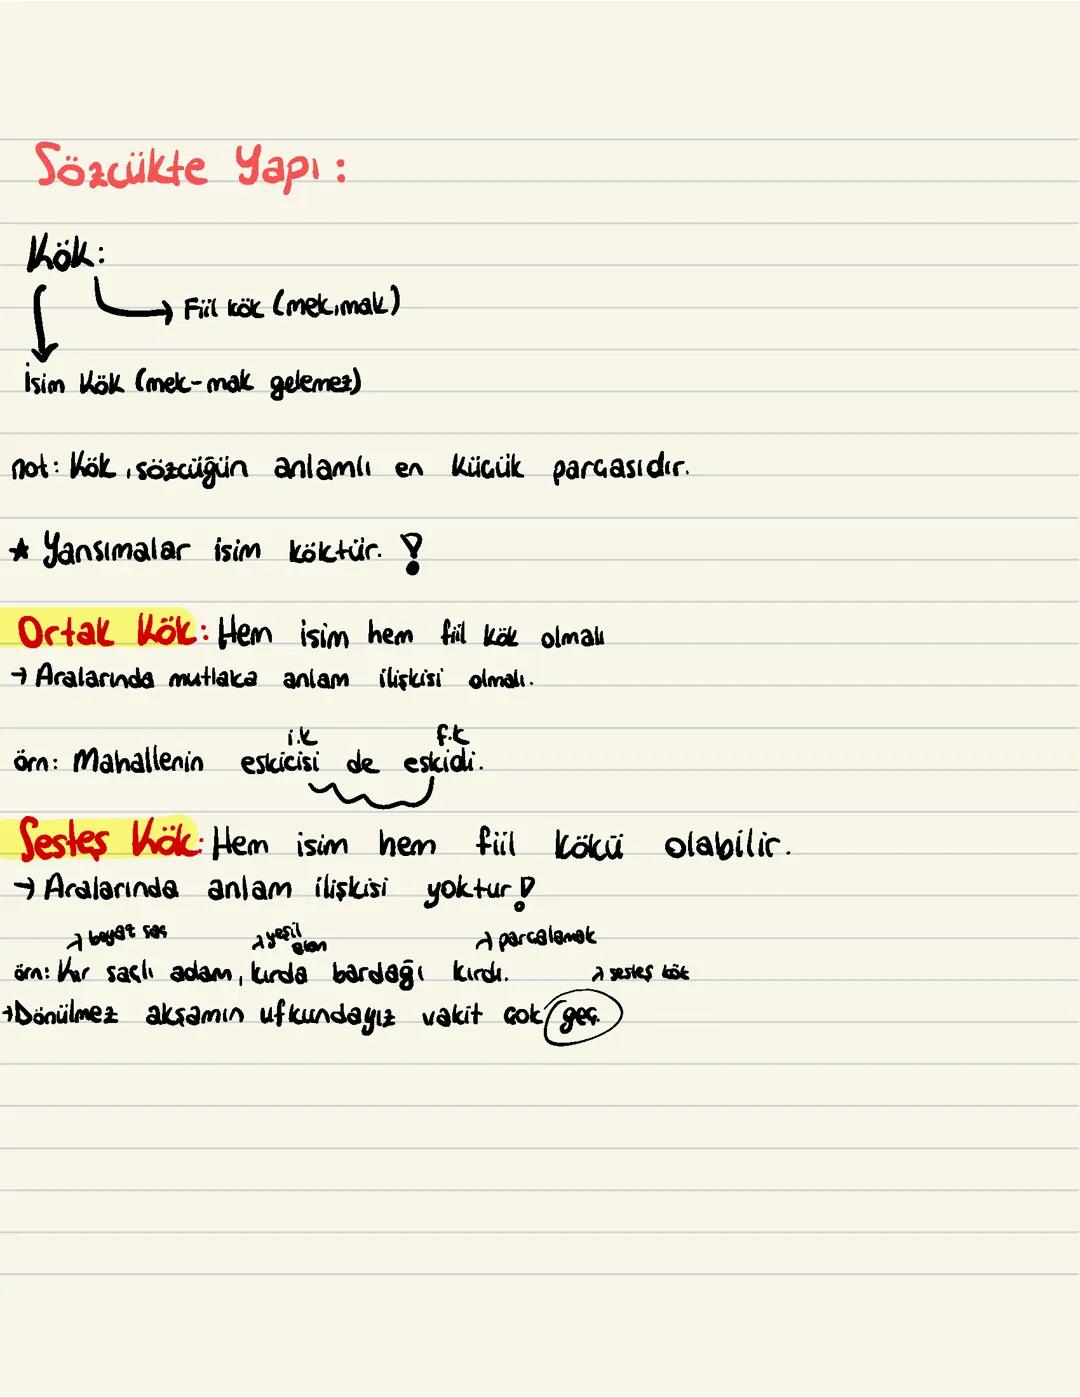 Sözcükte Yapı:
Kök:
→ Fiil kök (mek,mak)
İsim kök (mek-mak gelemez)
not: Kök, sözcüğün anlamlı en küçük parçasıdır.
★ Yansımalar isim köktür. !
Ortak Kök: Hem isim hem fiil kök olmalı
→ Aralarında mutlaka anlam ilişkisi olmalı.
i.k f.k
örn: Mahallenin eskicisi de eskidi.
Sesteş Kök: Hem isim hem fiil kökü olabilir.
→ Aralarında anlam ilişkisi yoktur !
→ beyaz saç → yeşil alan → parçalamak
örn: Kır saçlı adam, kırda bardağı kırdı. → sesteş kök
→ Dönülmez akşamın ufkundayız vakit çok geç.